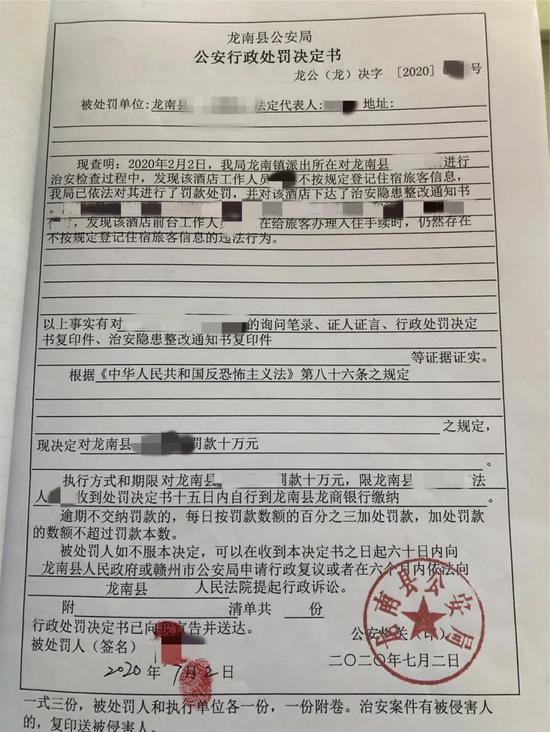 龙南县公安局
公安行政处罚决定书
龙公（龙）决字 [2020] 号
被处罚单位:龙南县 法定代表人: 地址:
现查明：2020年2月2日，我局龙南镇派出所在对龙南县 进行
治安检查过程中，发现该酒店工作人员 不按规定登记住宿旅客信息，
我局已依法对其进行了罚款处罚，并对该酒店下达了治安隐患整改通知书
。
发现该酒店前台工作人 在给旅客办理入住手续时，仍然存在
不按规定登记住宿旅客信息的违法行为。
以上事实有对 的询问笔录、证人证言、行政处罚决定
书复印件、治安隐患整改通知书复印件
等证据证实。
根据《中华人民共和国反恐怖主义法》第八十六条之规定
之规定，
现决定对龙南县 罚款十万元
。
执行方式和期限对龙南县 罚款十万元，限龙南县 法
人 收到处罚决定书十五日内自行到龙南县龙商银行缴纳
逾期不交纳罚款的，每日按罚款数额的百分之三加处罚款，加处罚款
的数额不超过罚款本数。
被处罚人如不服本决定，可以在收到本决定书之日起六十日内向
龙南县人民政府或赣州市公安局申请行政复议或者在六个月内依法向
龙南县 人民法院提起行政诉讼。
附 清单共 份
行政处罚决定书已向我宣告并送达。
被处罚人（签名） 公安机关（印）
2020年7月2日 二〇二〇年七月二日
龙南县公安局
一式三份，被处罚人和执行单位各一份，一份附卷。治安案件有被侵害人
的，复印送被侵害人。